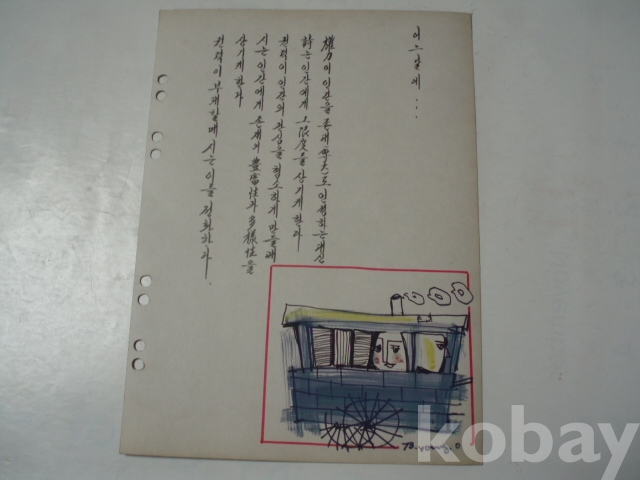 이느날에...
權力이 인간을 존대 尊大로 인정하는 대신
詩는 인간에게 그 限度를 상기케 한다
권력이 인간의 관심을 협소하게 만들때
시는 인간에게 존재의 豊富性과 多樣性을
상기케 한다
권력이 부패할때 시는 이를 정화한다.
To.young.O
kobay